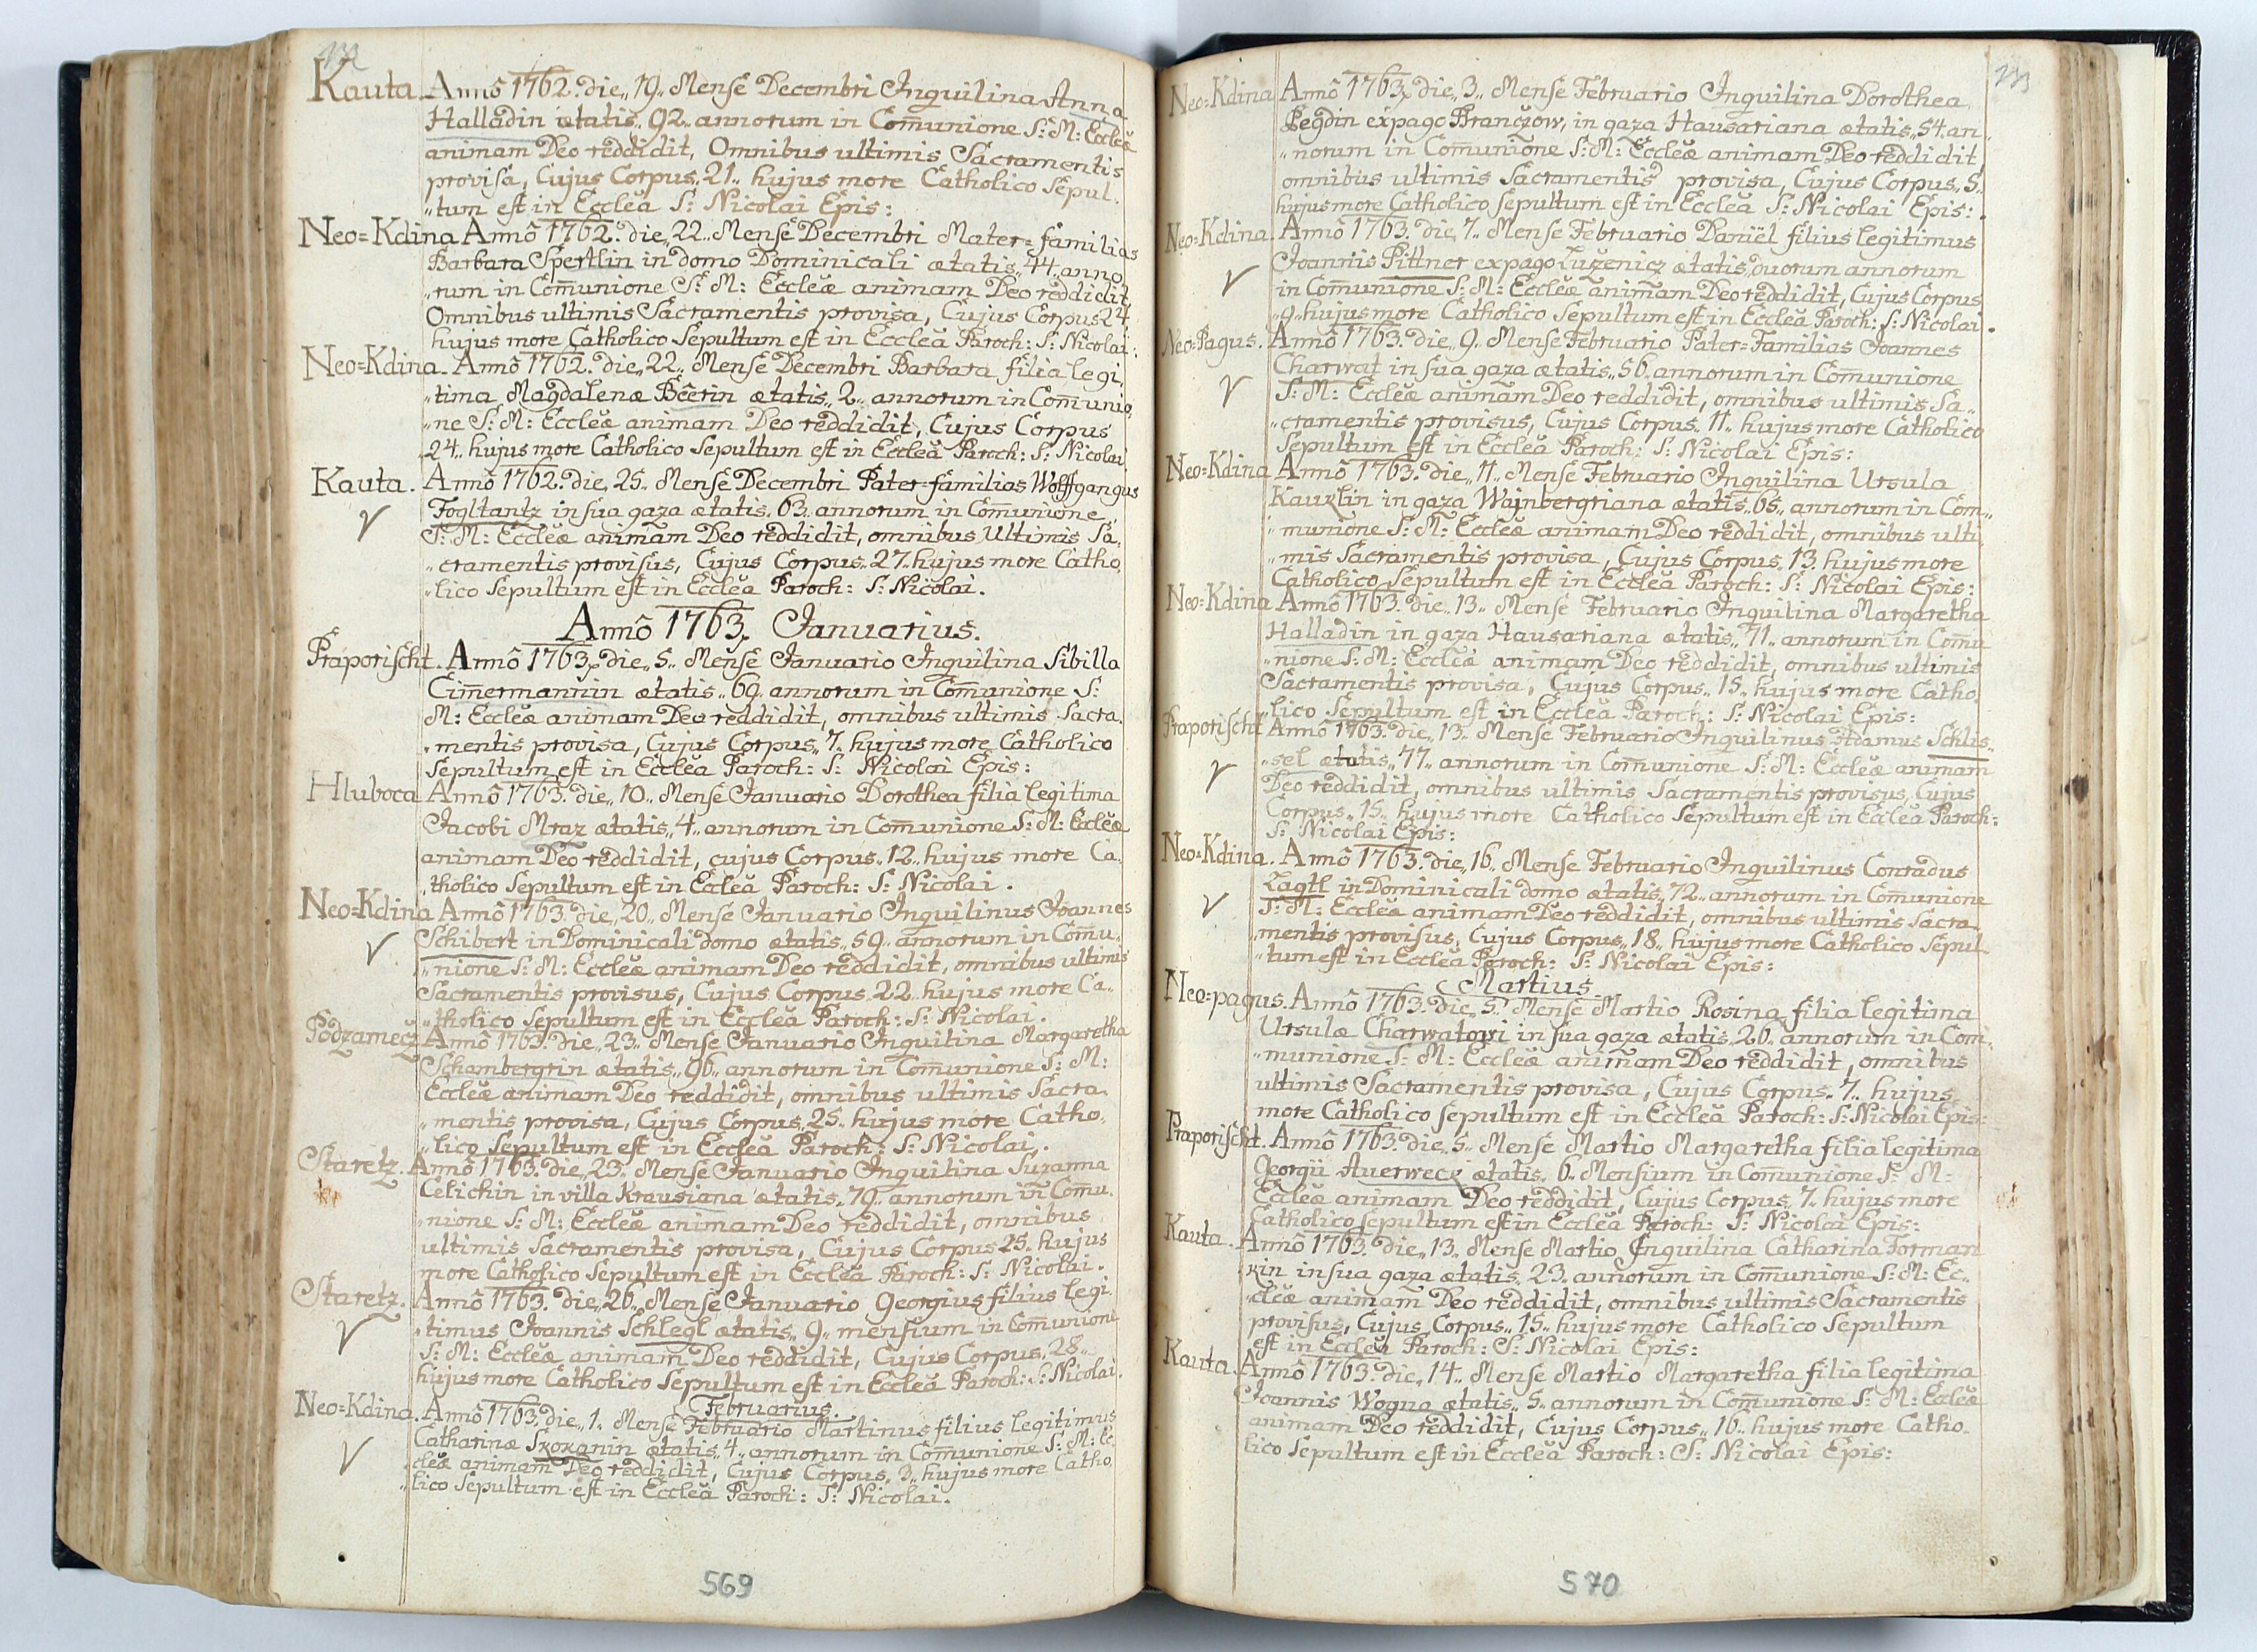 Kauta. Annô 1762. die„ 19„ Mense Decembri Inquilina Anna
Halladin ætatis„ 92„ annorum in Com̄unione S: M: Eccleæ
animam Deo reddidit, Omnibus ultimis Sacramentis
provisa, Cujus Corpus„ 21„ hujus more Catholico Sepul„
„tum est in Ecclea S: Nicolai Epis:
Neo=Kdina Annô 1762. die„ 22„ Mense Decembri Mater=familias
Barbara Spertlin in domo Dominicali ætatis„ 44„ anno„
„rum in Com̄unione S: M: Eccleæ animam Deo reddidit,
Omnibus ultimis Sacramentis provisa, Cujus Corpus 24„
hujus more Catholico Sepultum est in Ecclea Paroch: S: Nicolai.
Neo=Kdina. Annô 1762. die„ 22„ Mense Decembri Barbara filia legi„
„tima Magdalenæ Beerin ætatis„ 2„ annorum in Com̄unio„
„ne S: M: Eccleæ animam Deo reddidit, Cujus Corpus
24„ hujus more Catholico Sepultum est in Ecclea Paroch: S: Nicolai
Kauta. Annô 1762. die„ 25„ Mense Decembri Pater=familias Wolffgangus
Fogltantz in sua gaza ætatis„ 63„ annorum in Com̄unione
S: M: Eccleæ animam Deo reddidit, omnibus Ultimis Sa„
„cramentis provisus, Cujus Corpus„ 27„ hujus more Catho„
„lico Sepultum est in Ecclea Paroch: S: Nicolai.
Annô 1763. Januarius.
Praporischt. Annô 1763. die„ 5„ Mense Januario Inquilina Sibilla
Cim̄ermannin ætatis„ 69„ annorum in Com̄unione S:
M: Eccleæ animam Deo reddidit, omnibus ultimis Sacra„
„mentis provisa, Cujus Corpus„ 7„ hujus more Catholico
Sepultum est in Ecclea Paroch: S: Nicolai Epis:
Hluboca Annô 1763. die„ 10„ Mense Januario Dorothea filia legitima
Jacobi Mraz ætatis„ 4„ annorum in Com̄unione S: M: Eccleæ
animam Deo reddidit, cujus Corpus„ 12„ hujus more Ca„
„tholico Sepultum est in Ecclea Paroch: S: Nicolai.
Neo=Kdina Annô 1763. die„ 20„ Mense Januario Inquilinus Joannes
Schibert in Dominicali domo ætatis„ 59„ annorum in Com̄u„
„nione S: M: Eccleæ animam Deo reddidit, omnibus ultimis
Sacramentis provisus, Cujus Corpus„ 22„ hujus more Ca„
„tholico Sepultum est in Ecclea Paroch: S: Nicolai.
Podzamecz Annô 1763. die„ 23„ Mense Januario Inquilina Margaretha
Schambergrin ætatis„ 96„ annorum in Com̄unione S: M:
Eccleæ animam Deo reddidit, omnibus ultimis Sacra„
„mentis provisa, Cujus Corpus„ 25„ hujus more Catho„
„lico Sepultum est in Ecclea Paroch: S: Nicolai.
Staretz. Annô 1763. die„ 23„ Mense Januario Inquilina Suzanna
Celichin in villa Krausiana ætatis„ 79„ annorum in Com̄u„
„nione S: M: Eccleæ animam Deo reddidit, omnibus
ultimis Sacramentis provisa, Cujus Corpus 25„ hujus
more Catholico Sepultum est in Ecclea Paroch: S: Nicolai.
Staretz. Annô 1763. die„ 26„ Mense Januario Georgius filius legi„
„timus Joannis Schlegl ætatis„ 9„ mensium in Com̄unione
S: M: Eccleæ animam Deo reddidit, Cujus Corpus„ 28„
hujus more Catholico Sepultum est in Ecclea Paroch: S: Nicolai.
Februarius.
Neo=Kdina. Annô 1763. die„ 1„ Mense Februario Martinus filius legitimus
Catharinæ Skokanin ætatis„ 4„ annorum in Com̄unione S: M: Ec„
cleæ animam Deo reddidit, Cujus Corpus„ 3„ hujus more Catho„
„lico Sepultum est in Ecclea Paroch: S: Nicolai.
569
Neo=Kdina Annô 1763. die„ 3„ Mense Februario Inquilina Dorothea
Pegdin ex pago Branczow, in gaza Hausariana ætatis„ 54„ an„
„norum in Com̄unione S: M: Eccleæ animam Deo reddidit
omnibus ultimis Sacramentis provisa, Cujus Corpus„ 5„
hujus more Catholico Sepultum est in Ecclea S: Nicolai Epis:
Neo=Kdina. Annô 1763. die„ 7„ Mense Februario Daniël filius legitimus
Joannis Pittner ex pago Luzenicz ætatis duorum annorum
in Com̄unione S: M: Eccleæ animam Deo reddidit, Cujus Corpus
„9„ hujus more Catholico Sepultum est in Ecclea Paroch: S: Nicolai.
Neo=Pagus. Annô 1763. die„ 9„ Mense Februario Pater=Familias Joannes
Charwat in sua gaza ætatis„ 56„ annorum in Com̄unione
S: M: Eccleæ animam Deo reddidit, omnibus ultimis Sa„
„cramentis provisus, Cujus Corpus„ 11„ hujus more Catholico
Sepultum est in Ecclea Paroch: S: Nicolai Epis:
Neo=Kdina Annô 1763. die„ 11„ Mense Februario Inquilina Ursula
Kauzlin in gaza Wajnbergriana ætatis„ 65„ annorum in Com„
„munione S: M: Eccleæ animam Deo reddidit, omnibus ulti„
„mis Sacramentis provisa, Cujus Corpus„ 13„ hujus more
Catholico Sepultum est in Ecclea Paroch: S: Nicolai Epis:
Neo=Kdina Annô 1763. die„ 13„ Mense Februario Inquilina Margaretha
Halladin in gaza Hausariana ætatis„ 71„ annorum in Com̄u
„nione S: M: Eccleæ animam Deo reddidit, omnibus ultimis
Sacramentis provisa, Cujus Corpus„ 15„ hujus more Catho„
„lico Sepultum est in Ecclea Paroch: S: Nicolai Epis:
Praporischt Annô 1763. die„ 13„ Mense Februario Inquilinus Adamus Schlis„
„sel ætatis„ 77„ annorum in Com̄unione S: M: Eccleæ animam
Deo reddidit, omnibus ultimis Sacramentis provisus, Cujus
Corpus„ 15„ hujus more Catholico Sepultum est in Ecclea Paroch:
S: Nicolai Epis:
Neo=Kdina. Annô 1763. die„ 16„ Mense Februario Inquilinus Conradus
Zagtl in Dominicali domo ætatis„ 72„ annorum in Com̄unione
S: M: Eccleæ animam Deo reddidit, omnibus ultimis Sacra„
„mentis provisus, Cujus Corpus„ 18„ hujus more Catholico Sepul„
„tum est in Ecclea Paroch: S: Nicolai Epis:
Martius
Neo=pagus. Annô 1763. die„ 5„ Mense Martio Rosina filia legitima
Ursulæ Charwatowi in sua gaza ætatis„ 20„ annorum in Com„
„munione S: M: Eccleæ animam Deo reddidit, omnibus
ultimis Sacramentis provisa, Cujus Corpus„ 7„ hujus
more Catholico sepultum est in Ecclea Paroch: S: Nicolai Epis:
Praporischt. Annô 1763. die„ 5„ Mense Martio Margaretha filia legitima
Georgii Auerweck ætatis„ 6„ Mensium in Com̄unione S: M:
Eccleæ animam Deo reddidit, Cujus Corpus„ 7„ hujus more
Catholico sepultum est in Ecclea Paroch: S: Nicolai Epis:
Kauta. Annô 1763. die„ 13„ Mense Martio Inquilina Catharina Forman
kin in sua gaza ætatis„ 23„ annorum in Com̄unione S: M: Ec„
„cleæ animam Deo reddidit, omnibus ultimis Sacramentis
provisus, Cujus Corpus„ 15„ hujus more Catholico Sepultum
est in Ecclea Paroch: S: Nicolai Epis:
Kauta. Annô 1763. die„ 14„ Mense Martio Margaretha filia legitima
Joannis Wogna ætatis„ 5„ annorum in Com̄unione S: M: Eccleæ
animam Deo reddidit, Cujus Corpus„ 16„ hujus more Catho„
lico Sepultum est in Ecclea Paroch: S: Nicolai Epis:
570